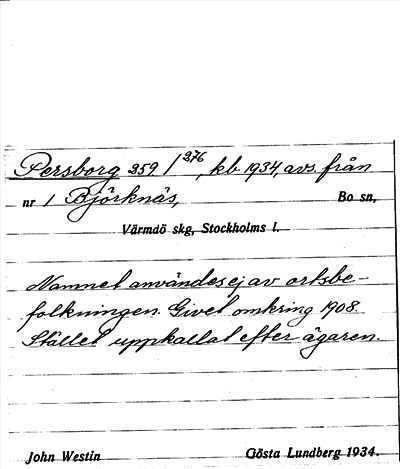 Persborg 259 / 276, kb 1934, avs. från
nr 1 Björknäs, Bo sn,
Värmdö skg, Stockholms l.
Namnet användes ej av ortsbe-
folkningen. Givet omkring 1908.
Stället uppkallat efter ägaren.
John Westin Gösta Lundberg 1934.